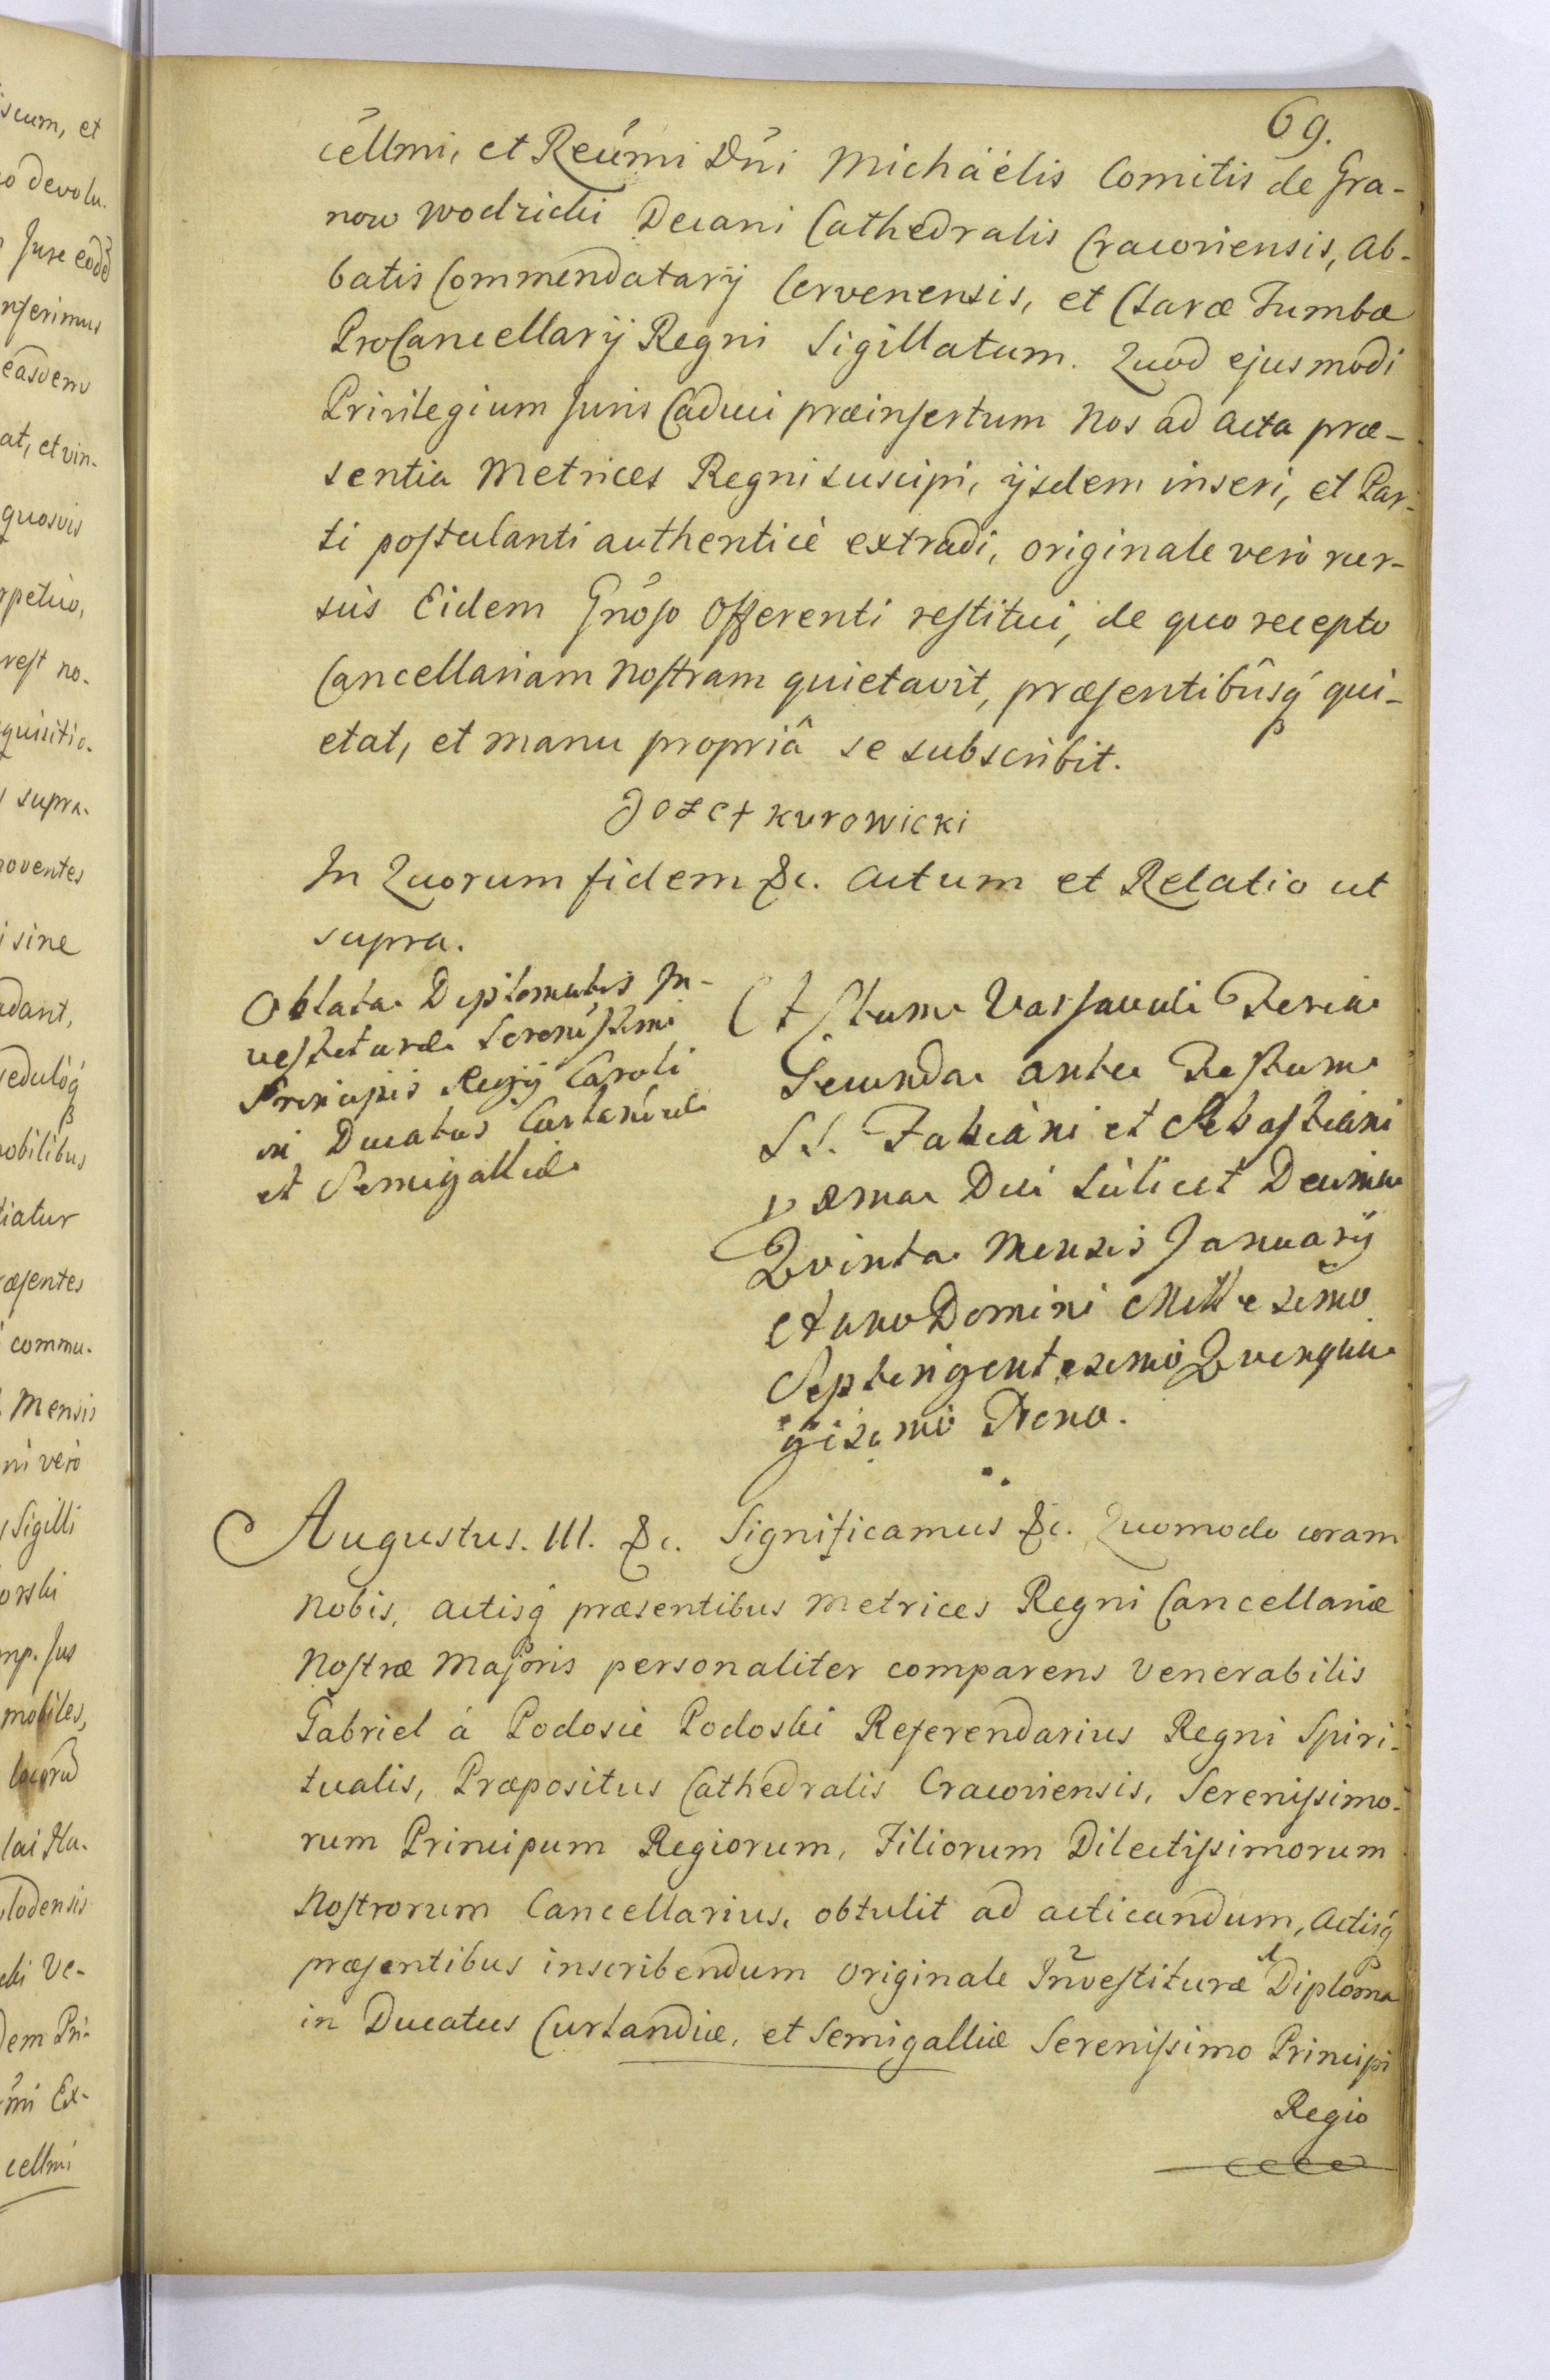 69.
cellmi, et Reúmi Dńi Michaëlis Comitis de Gra-
now Wodzicki Decani Cathedralis Cracoviensis, Ab-
batis Commendatarij Cervenensis, et Claræ Tumbæ
ProCancellarij Regni Sigillatum. Quod ejusmodi
Privilegium Juris Caduci præinsertum Nos ad Acta præ-
sentia Metrices Regni suscipi, ijsdem inseri, et Par-
ti postulanti authenticè extradi, originale verò rur-
sùs Eidem Gnóso Offerenti restitui, de quo recepto
Cancellariam Nostram quietavit, præsentibûsq́ qui-
etat, et manu propriâ se subscribit.
Jozef Kurowicki
In Quorum fidem &c. Actum et Relatio ut
supra.
Oblata Diplomatis In-
vestituræ Serenissimi
Principis Regij Caroli
in Ducatus Curlandiæ
et Semigalliæ
Actum Varsaviæ Feria
Secunda ante Festum
SS. Fabiani et Sebastiani
Dei scilicet Decima
Quinta Mensis Januarij
Anno Domini Millesimo
Septingentesimo Quinqua
gesimo Nono.
Augustus. III. &c. Significamus &c. Quomodo coram
Nobis, Actisq́ præsentibus Metrices Regni Cancellariæ
Nostræ Majoris personaliter comparens Venerabilis
Gabriel à Podosie Podoski Referendarius Regni Spiri-
tualis, Præpositus Cathedralis Cracoviensis, Serenissimo-
rum Principum Regiorum, Filiorum Dilectissimorum
Nostrorum Cancellarius, obtulit ad acticandum, Actisq́
præsentibus inscribendum Originale Investituræ Diploma
in Ducatus Curlandiæ, et Semigalliæ Serenissimo Principi
Regio